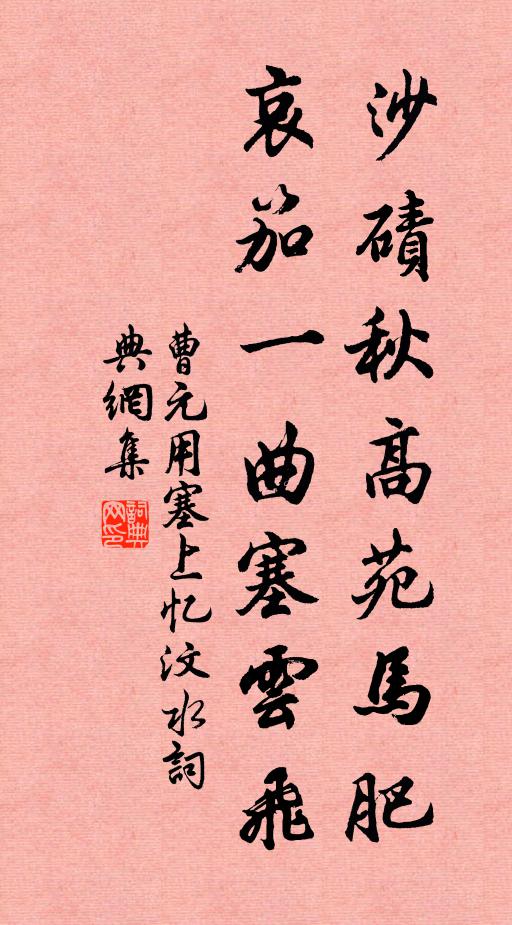 沙磧秋高苑馬肥
哀笳一曲塞雲飛
曹元用塞上忆汶水詞
典網集
詞典
网印